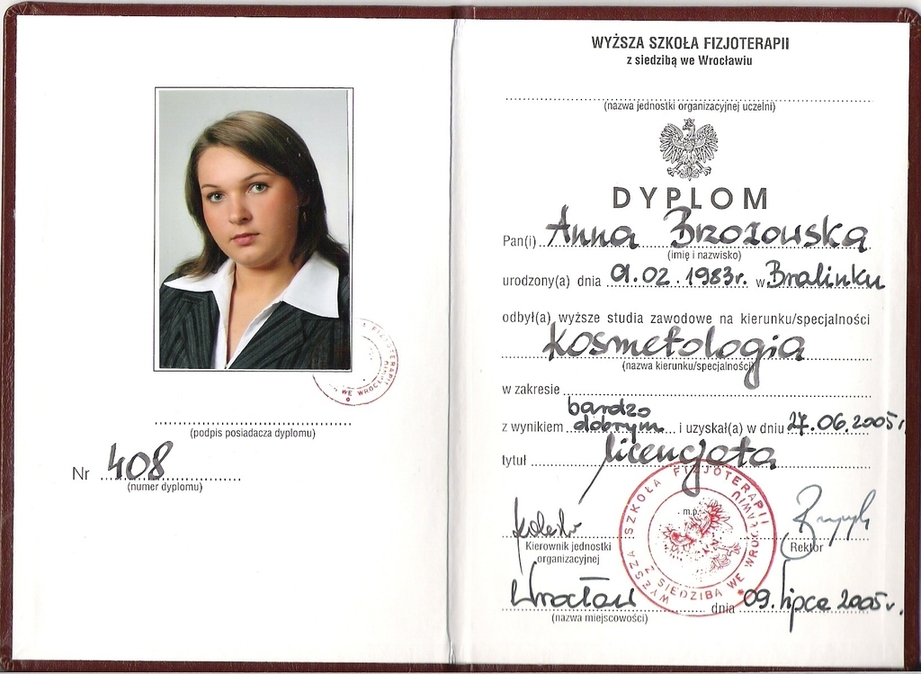 (podpis posiadacza dyplomu)
Nr 408
(numer dyplomu)
WYŻSZA SZKOŁA FIZJOTERAPII
z siedzibą we Wrocławiu
(nazwa jednostki organizacyjnej uczelni)
DYPLOM
Pan(i) Anna Brozowska
(imię i nazwisko)
urodzony(a) dnia 01.02.1983r. w Bralinku
odbył(a) wyższe studia zawodowe na kierunku/specjalności
kosmetologia
(nazwa kierunku/specjalności)
w zakresie
z wynikiem bardzo dobrym i uzyskał(a) w dniu 27.06.2005r.
tytuł licencjata
m.p.
WYŻSZA SZKOŁA FIZJOTERAPII
Z SIEDZIBĄ WE WROCŁAWIU
Kierownik jednostki
organizacyjnej
Rektor
Wrocław dnia 09. lipca 2005r.
(nazwa miejscowości)